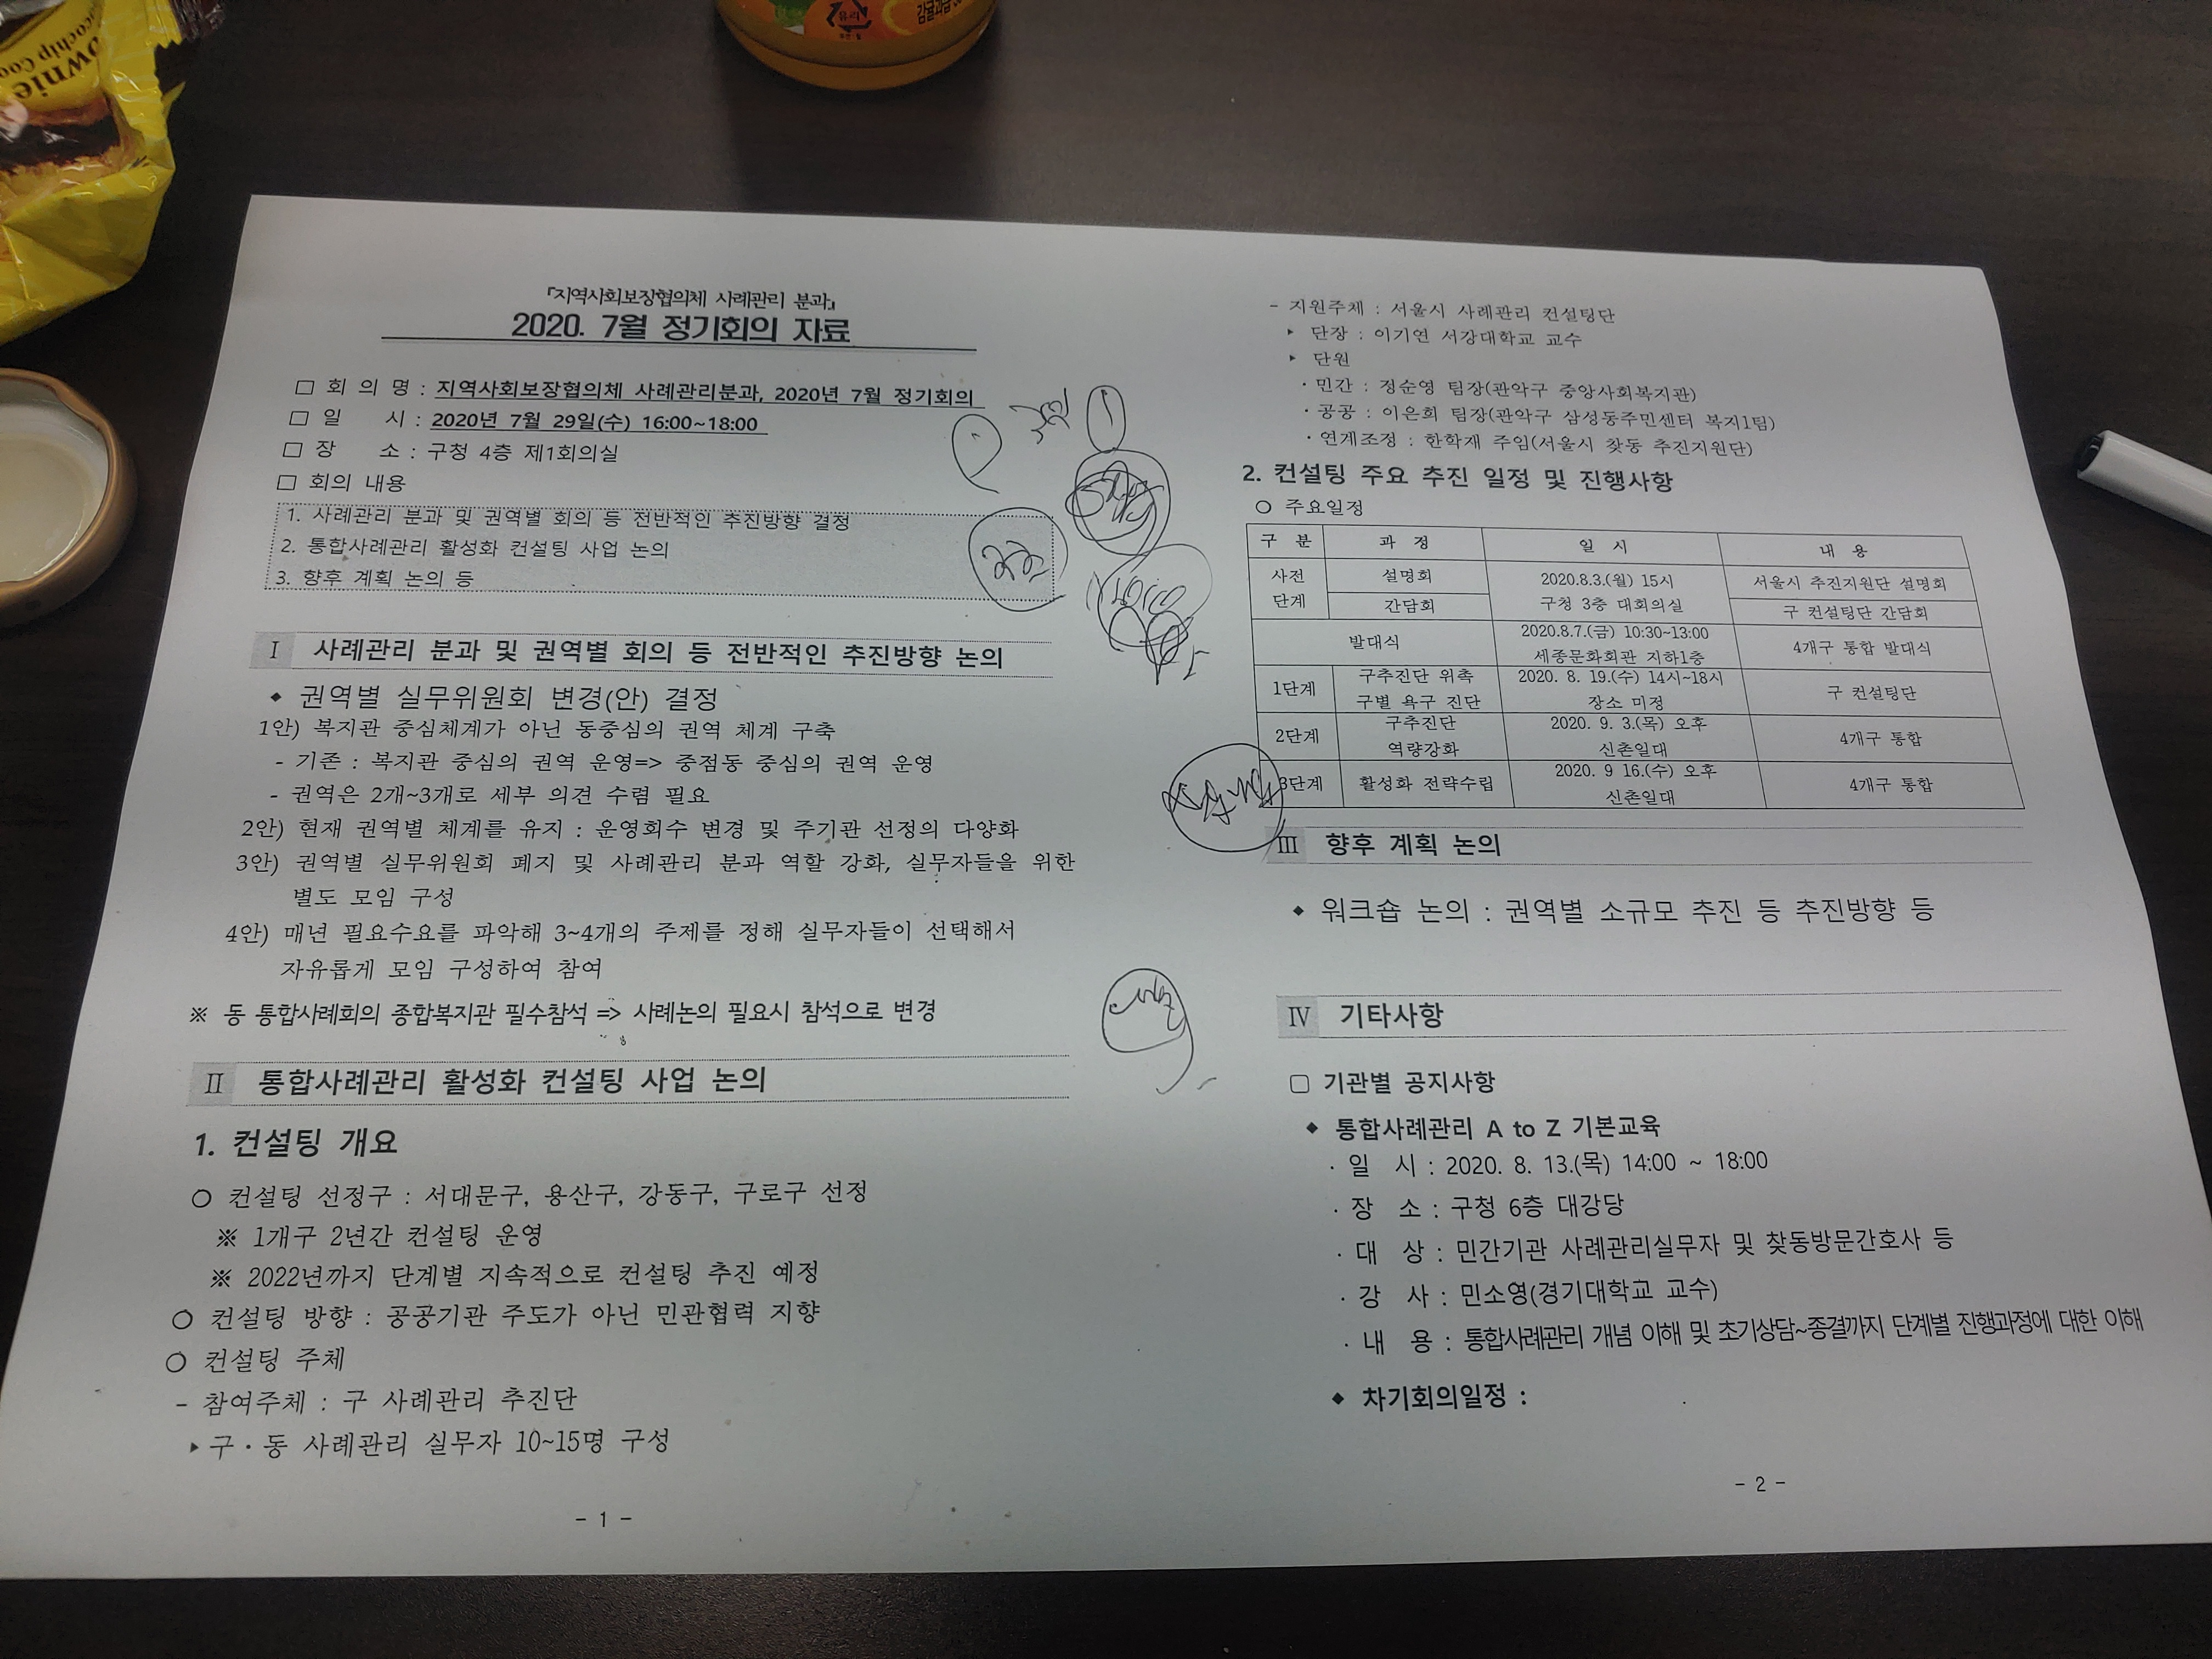 『지역사회보장협의체 사례관리 분과』
2020. 7월 정기회의 자료
□ 회 의 명 : 지역사회보장협의체 사례관리분과, 2020년 7월 정기회의
□ 일 시 : 2020년 7월 29일(수) 16:00~18:00
□ 장 소 : 구청 4층 제1회의실
□ 회의 내용
1. 사례관리 분과 및 권역별 회의 등 전반적인 추진방향 결정
2. 통합사례관리 활성화 컨설팅 사업 논의
3. 향후 계획 논의 등
Ⅰ 사례관리 분과 및 권역별 회의 등 전반적인 추진방향 논의
◆ 권역별 실무위원회 변경(안) 결정
1안) 복지관 중심체계가 아닌 동중심의 권역 체계 구축
- 기존 : 복지관 중심의 권역 운영=> 중점동 중심의 권역 운영
- 권역은 2개~3개로 세부 의견 수렴 필요
2안) 현재 권역별 체계를 유지 : 운영회수 변경 및 주기관 선정의 다양화
3안) 권역별 실무위원회 폐지 및 사례관리 분과 역할 강화, 실무자들을 위한
별도 모임 구성
4안) 매년 필요수요를 파악해 3~4개의 주제를 정해 실무자들이 선택해서
자유롭게 모임 구성하여 참여
※ 동 통합사례회의 종합복지관 필수참석 => 사례논의 필요시 참석으로 변경
Ⅱ 통합사례관리 활성화 컨설팅 사업 논의
1. 컨설팅 개요
○ 컨설팅 선정구 : 서대문구, 용산구, 강동구, 구로구 선정
※ 1개구 2년간 컨설팅 운영
※ 2022년까지 단계별 지속적으로 컨설팅 추진 예정
○ 컨설팅 방향 : 공공기관 주도가 아닌 민관협력 지향
○ 컨설팅 주체
- 참여주체 : 구 사례관리 추진단
▸ 구·동 사례관리 실무자 10~15명 구성
- 1 -
- 지원주체 : 서울시 사례관리 컨설팅단
▸ 단장 : 이기연 서강대학교 교수
▸ 단원
· 민간 : 정순영 팀장(관악구 중앙사회복지관)
· 공공 : 이은희 팀장(관악구 삼성동주민센터 복지1팀)
· 연계조정 : 한학재 주임(서울시 찾동 추진지원단)
2. 컨설팅 주요 추진 일정 및 진행사항
○ 주요일정
구 분 과 정 일 시 내 용
사전 단계 설명회 2020.8.3.(월) 15시 서울시 추진지원단 설명회
간담회 구청 3층 대회의실 구 컨설팅단 간담회
발대식 2020.8.7.(금) 10:30~13:00 4개구 통합 발대식
세종문화회관 지하1층
1단계 구추진단 위촉 2020. 8. 19.(수) 14시~18시 구 컨설팅단
구별 욕구 진단 장소 미정
2단계 구추진단 2020. 9. 3.(목) 오후 4개구 통합
역량강화 신촌일대
3단계 활성화 전략수립 2020. 9 16.(수) 오후 4개구 통합
신촌일대
Ⅲ 향후 계획 논의
◆ 워크숍 논의 : 권역별 소규모 추진 등 추진방향 등
Ⅳ 기타사항
□ 기관별 공지사항
◆ 통합사례관리 A to Z 기본교육
· 일 시 : 2020. 8. 13.(목) 14:00 ~ 18:00
· 장 소 : 구청 6층 대강당
· 대 상 : 민간기관 사례관리실무자 및 찾동방문간호사 등
· 강 사 : 민소영(경기대학교 교수)
· 내 용 : 통합사례관리 개념 이해 및 초기상담~종결까지 단계별 진행과정에 대한 이해
◆ 차기회의일정 :
- 2 -